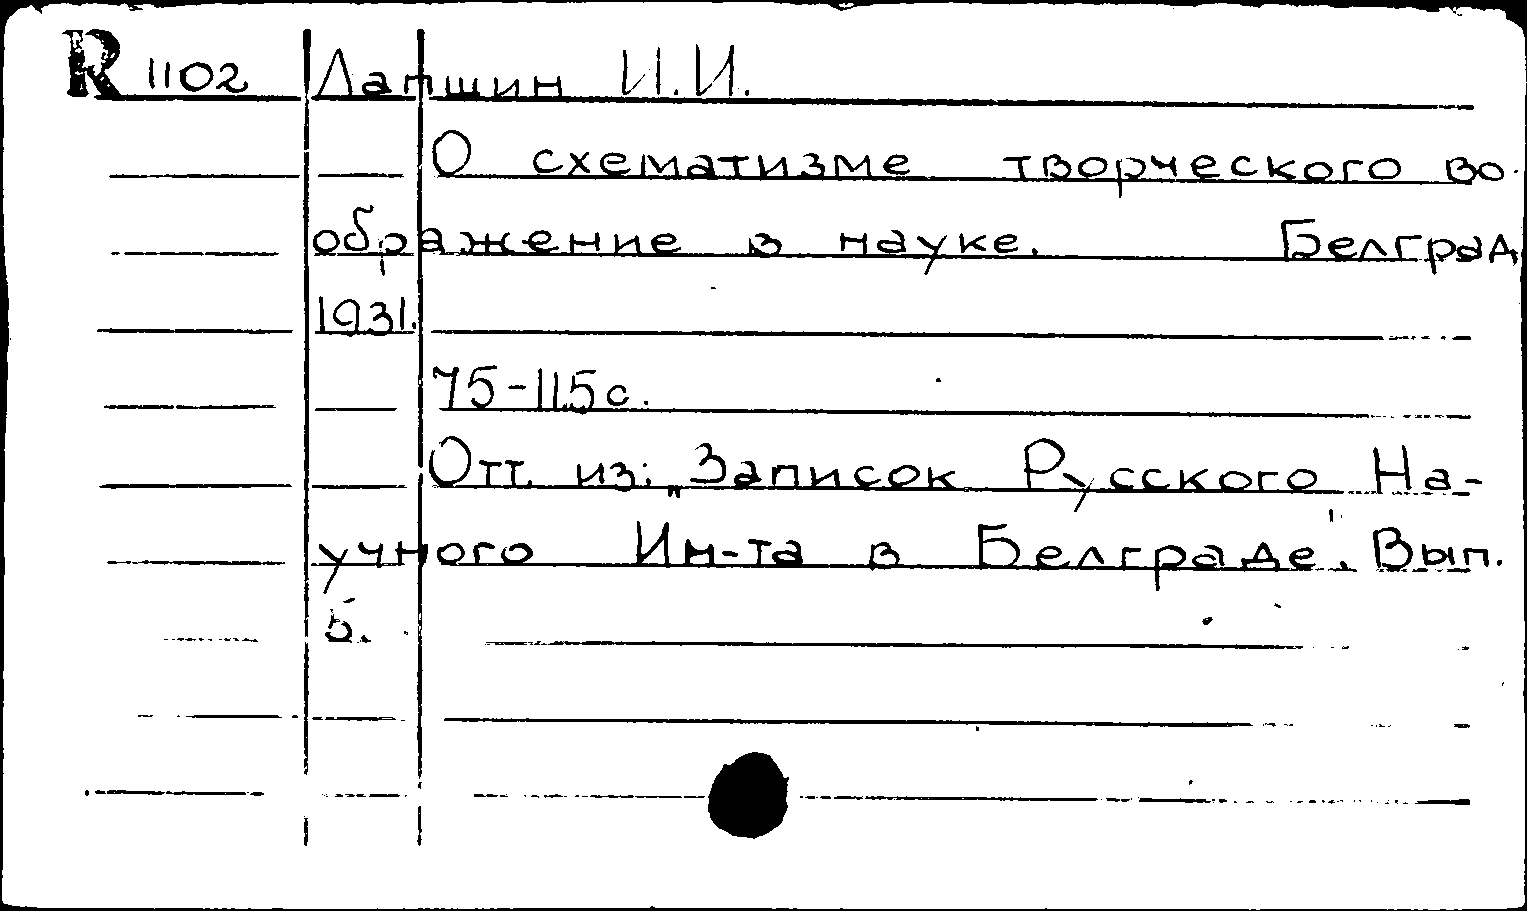 R 1102 Лапшин И.И.
О схематизме творческого во-
ображение в науке. Белград
1931.
75-115с.
Отт. из: „Записок Русского На-
учного Ин-та в Белграде". Вып.
5.